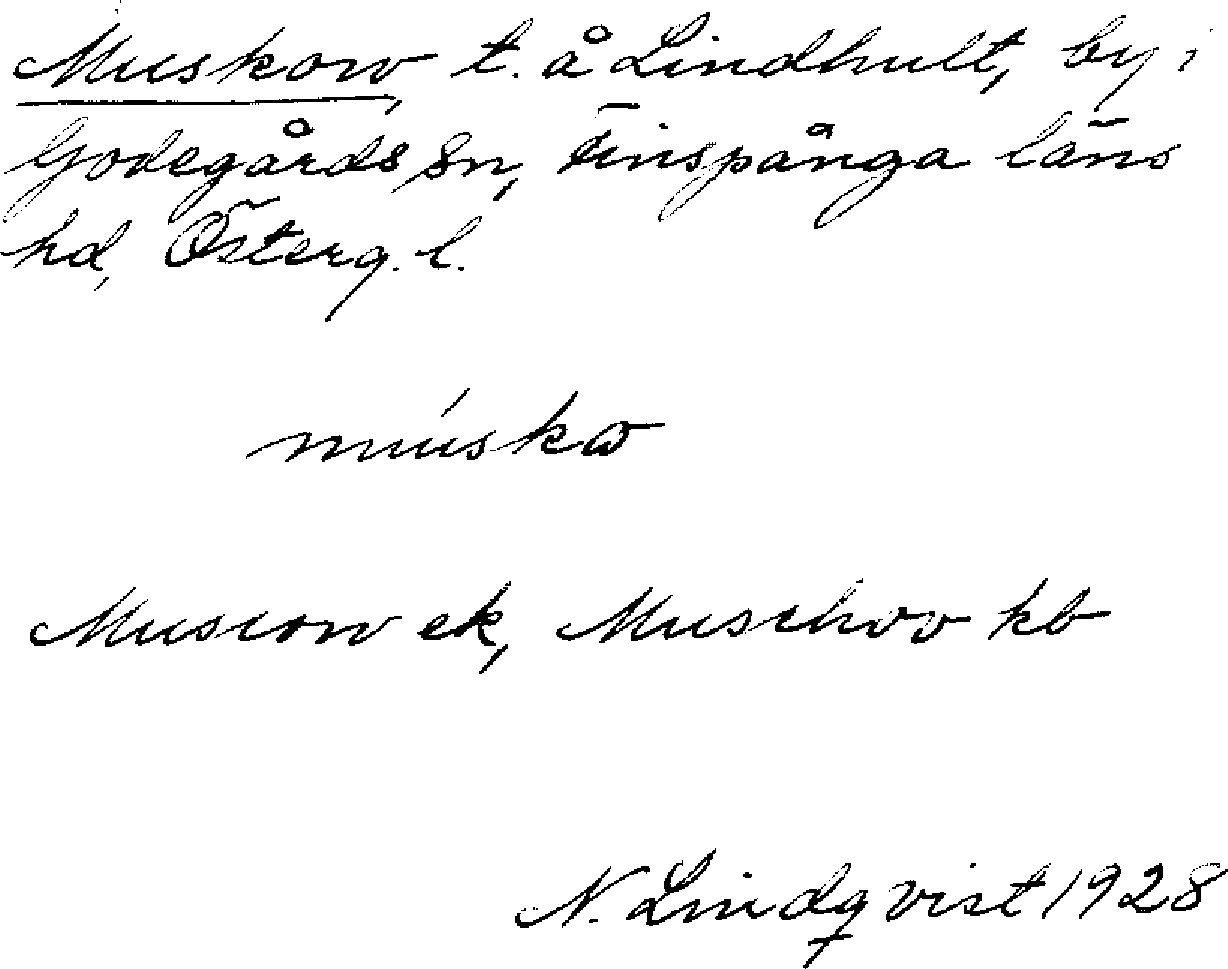 Muskow, t. å Lindhult, by i
Godegårds sn, Finspånga läns
hd, Österg. l.
múskɷ
Muscow ek, Muschov kb
N. Lindqvist 1928